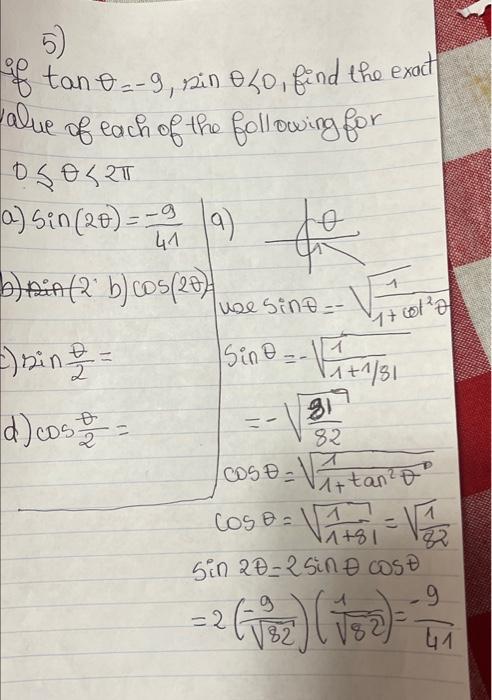 5)
if tan θ = -9, sin θ<0, find the exact
value of each of the following for
0 ≤ θ < 2π
a) sin(2θ) = -9/41
a) θ
b) sin(2 b) cos(2θ)
use sin θ = -√(1/(1+cot²θ))
sin θ = -√(1/(1+1/81))
c) sin θ/2 =
= -√(81/82)
d) cos θ/2 =
cos θ = √(1/(1+tan²θ))
cos θ = √(1/(1+81)) = √(1/82)
sin 2θ = 2 sin θ cos θ
= 2(-9/√82)(1/√82) = -9/41